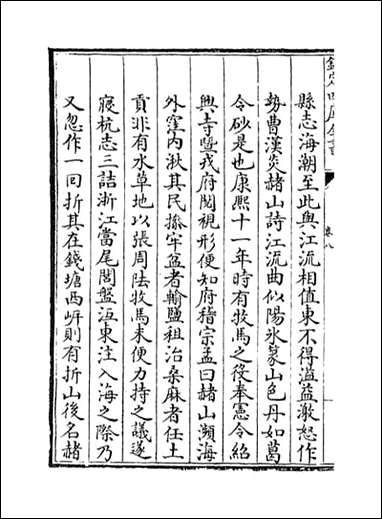 欽定四庫全書
卷八
縣志海潮至此與江流相值東不得溢益激怒作
勢曹漢炎赭山詩江流曲似陽氷篆山色丹如葛
令砂是也康熙十一年時有牧馬之役奉憲令紹
興寺暨戎府閱視形便知府稽宗孟曰赭山瀕海
外窪内湫其民操牢盆者輸鹽租治桑麻者任土
貢非有水草地以張周陸牧馬未便力持之議遂
寢杭志三詰浙江當尾閭盤洰東注入海之際乃
又忽作一回折其在錢塘西岍則有折山後名赭